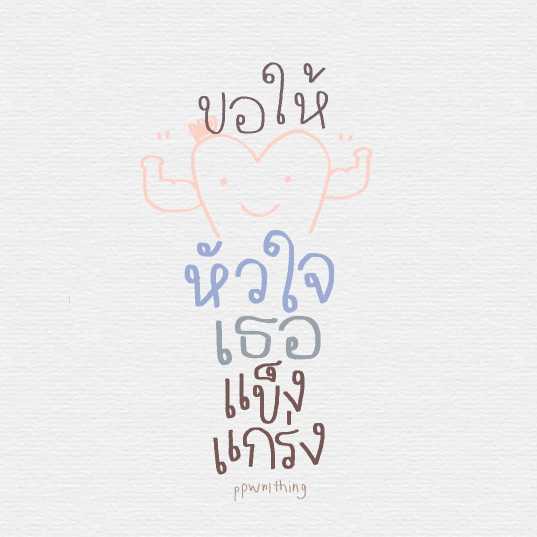 ขอให้
หัวใจ
เธอ
แข็ง
แกร่ง
ppwnithing